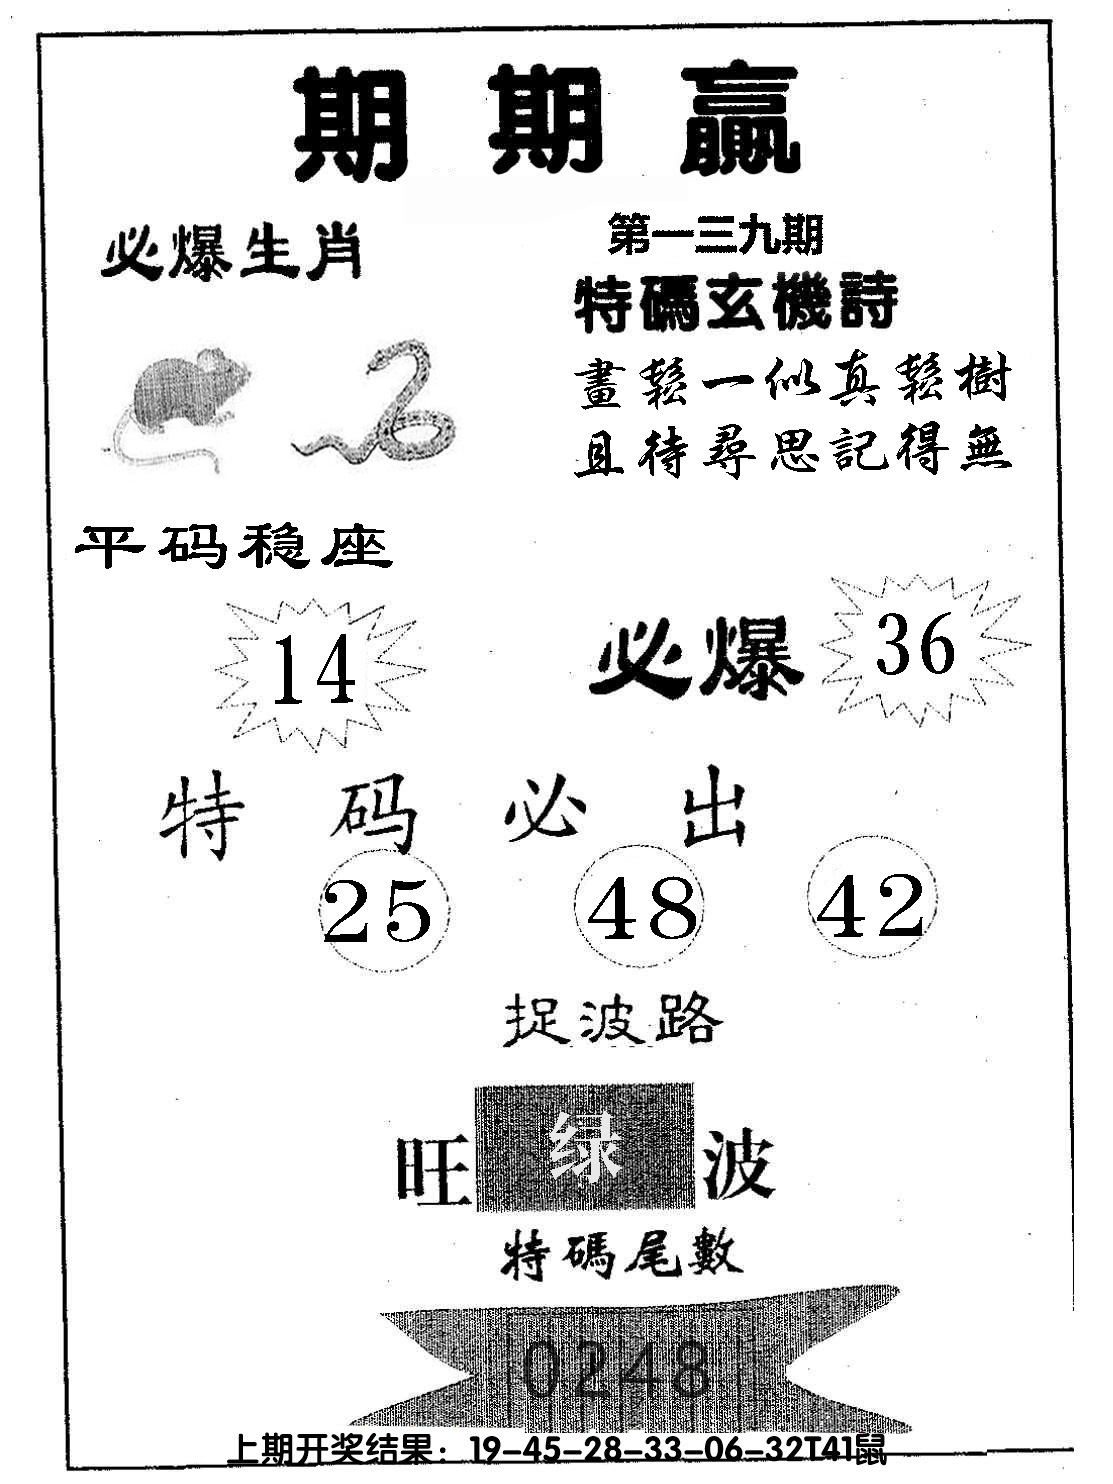 期期赢
必爆生肖
第一三九期
特碼玄機詩
畫鬆一似真鬆樹
且待尋思記得無
平码稳座
14
必爆 36
特码必出
25 48 42
捉波路
旺 绿 波
特碼尾數
0248
上期开奖结果：19-45-28-33-06-32T41鼠